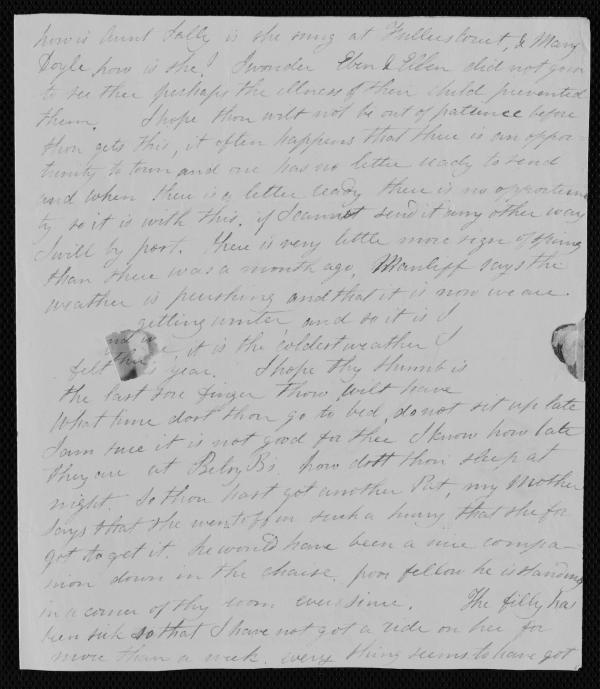 how is Aunt Sally is she snug at Fullers Court, & Mary
Doyle how is she? I wonder Eben & Ellen did not go on
to see thee perhaps the illness of their child prevented
them. I hope thou wilt not be out of patience before
thou gets this, it often happens that there is an oppor-
tunity to town and one has no letter ready to send
and when there is a letter ready there is no opportuni
ty so it is with this. if I cannot send it any other way
I will by post. There is very little more sign of spring
than there was a month ago, Manliff says the
weather is perishing and that it is now we are
getting winter, and so it is I
it is the coldest weather I
felt this year. I hope thy thumb is
the last sore finger thou wilt have
What time dost thou go to bed, do not sit up late
I am sure it is not good for thee I know how late
they are at B's, how dost thou sleep at
night. So thou hast got another Pat, my Mother
says that she went off in such a hurry that she for
got to get it. he would have been a nice compa-
nion down in the chaise, poor fellow he is standing
in a corner of thy room ever since. The filly has
been sick so that I have not got a ride on her for
more than a week. every thing seems to have got